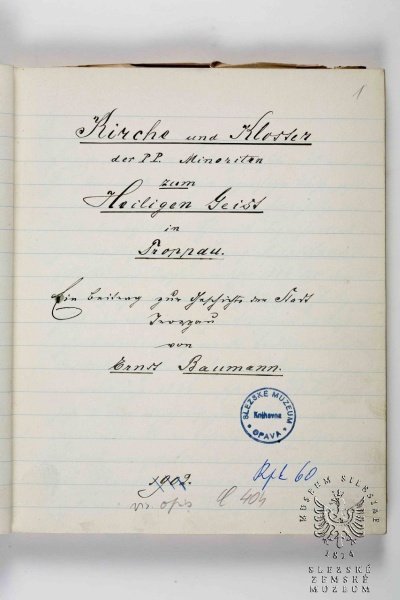 1
Kirche und Kloster
der P.P. Minoriten
zum
Heiligen Geist
in
Troppau.
Ein Beitrag zur Geschichte der Stadt
Troppau
von
Ernst Baumann.
SLEZSKÉ MUZEUM
Knihovna
OPAVA
1902.
Rpk 60
viz opis
MUSEUM SILESIAE
1814
SLEZSKÉ
ZEMSKÉ
MUZEUM